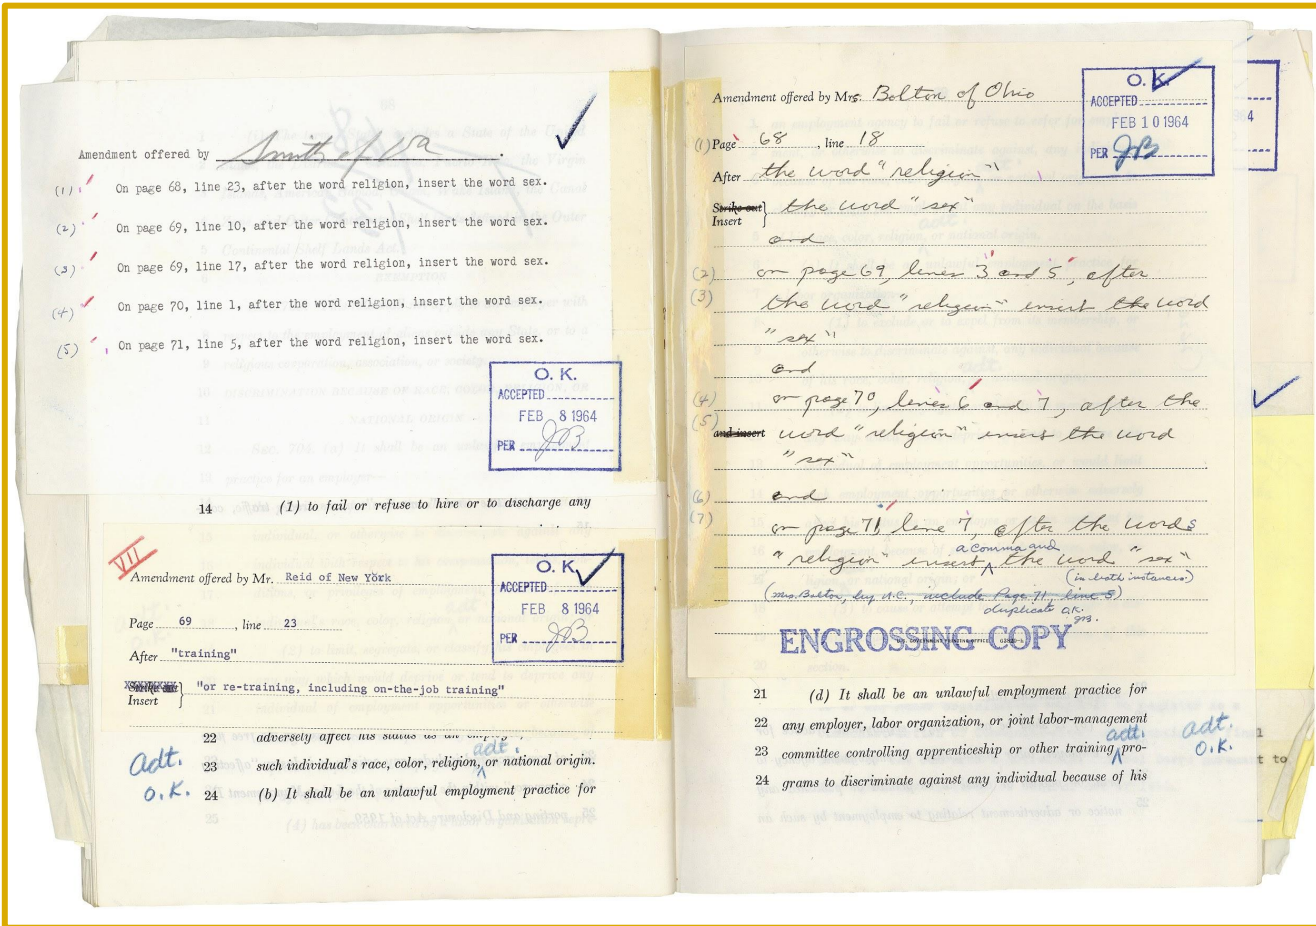 Amendment offered by Smith of Va.
(1) On page 68, line 23, after the word religion, insert the word sex.
(2) On page 69, line 10, after the word religion, insert the word sex.
(3) On page 69, line 17, after the word religion, insert the word sex.
(4) On page 70, line 1, after the word religion, insert the word sex.
(5) On page 71, line 5, after the word religion, insert the word sex.
O. K.
ACCEPTED
FEB 8 1964
PER JB
14 (1) to fail or refuse to hire or to discharge any
VII
Amendment offered by Mr. Reid of New York
Page 69, line 23
After "training"
Strike out
Insert } "or re-training, including on-the-job training"
O. K.
ACCEPTED
FEB 8 1964
PER JB
22 adversely affect his status as an employee,
adt.
23 such individual's race, color, religion, or national origin.
24 (b) It shall be an unlawful employment practice for
adt.
O.K.
Amendment offered by Mrs. Bolton of Ohio
(1) Page 68, line 18
After the word "religion"
Strike out
Insert } the word "sex"
and
(2) on page 69, lines 3 and 5, after
(3) the word "religion" insert the word
"sex"
and
(4) on page 70, lines 6 and 7, after the
(5) and insert word "religion" insert the word
"sex"
(6) and
(7) on page 71, line 7, after the words
"religion" insert a comma and the word "sex"
(in both instances)
(Mrs. Bolton, by U.C., include Page 71, line 5)
duplicate O.K.
JB.
O. K.
ACCEPTED
FEB 10 1964
PER JB
ENGROSSING COPY
21 (d) It shall be an unlawful employment practice for
22 any employer, labor organization, or joint labor-management
adt.
23 committee controlling apprenticeship or other training pro-
24 grams to discriminate against any individual because of his
adt.
O.K.